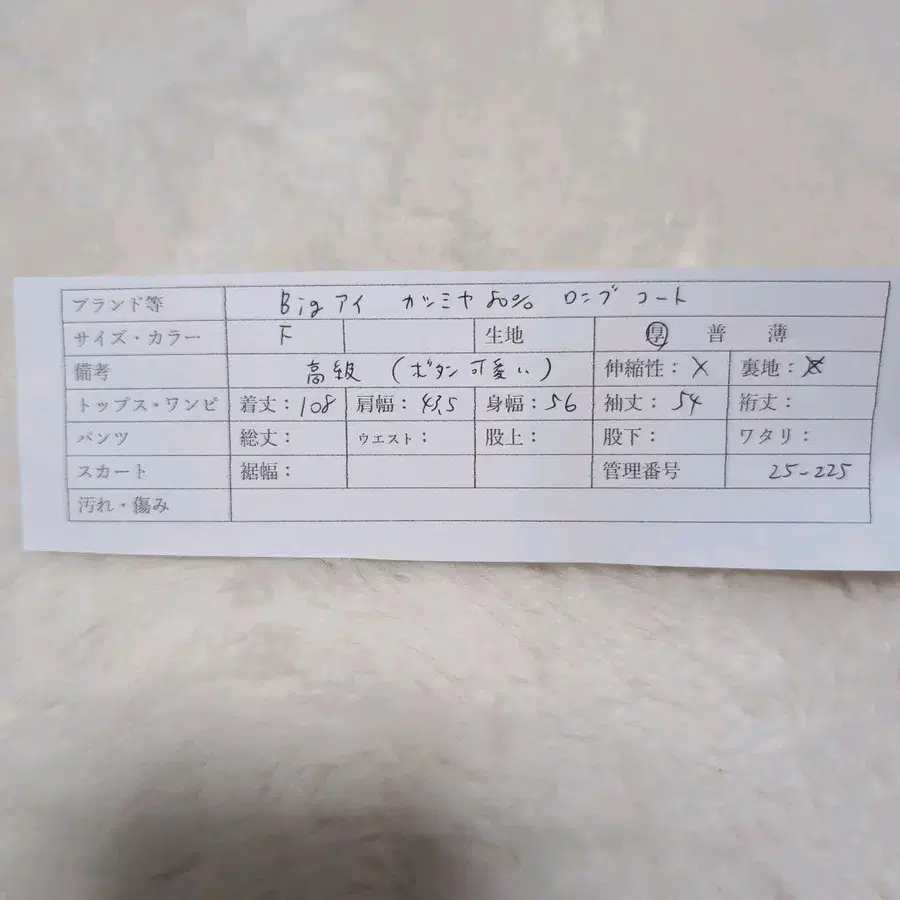 ブランド等 Bigアイ カシミヤ 80% ロング コート
サイズ・カラー F 生地 厚 普 薄
備考 高級 (ボタン可愛い) 伸縮性:X 裏地:X
トップス・ワンピ 着丈:108 肩幅:43.5 身幅:56 袖丈:54 裄丈:
パンツ 総丈: ウエスト: 股上: 股下: ワタリ:
スカート 裾幅: 管理番号 25-225
汚れ・傷み